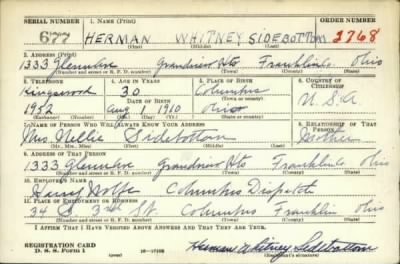 SERIAL NUMBER 1. NAME (Print) ORDER NUMBER
677 HERMAN WHITNEY SIDEBOTTOM 2768
(First) (Middle) (Last)
2. ADDRESS (Print)
1333 Glenn Ave Grandview Hts Franklin Co. Ohio
(Number and street or R. F. D. number) (Town) (County) (State)
3. TELEPHONE 4. AGE IN YEARS 5. PLACE OF BIRTH 6. COUNTRY OF CITIZENSHIP
Kingswood 30 Columbus
DATE OF BIRTH (Town or county) U.S.A.
1952 Aug 1 1910 Ohio
7. NAME OF PERSON WHO WILL ALWAYS KNOW YOUR ADDRESS 8. RELATIONSHIP OF THAT PERSON
Mrs. Nellie Sidebottom Mother
(Mr., Mrs., Miss) (First) (Middle) (Last)
9. ADDRESS OF THAT PERSON
1333 Glenn Ave Grandview Hts Franklin Co. Ohio
(Number and street or R. F. D. number) (Town) (County) (State)
10. EMPLOYER'S NAME
Wolfe Columbus Dispatch
11. PLACE OF EMPLOYMENT OR BUSINESS
34 S. 3rd St. Columbus Franklin Ohio
(Number and street or R. F. D. number) (Town) (County) (State)
I AFFIRM THAT I HAVE VERIFIED ABOVE ANSWERS AND THAT THEY ARE TRUE.
REGISTRATION CARD
D. S. S. Form 1 (over) Herman Whitney Sidebottom
(Registrant's signature)